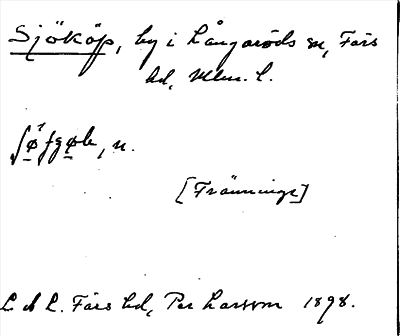 Sjököp, by i Långaröds sn, Färs
hd, Mlm. l.
[Tränninge]
L A L. Färs hd, Per Larsson 1898.